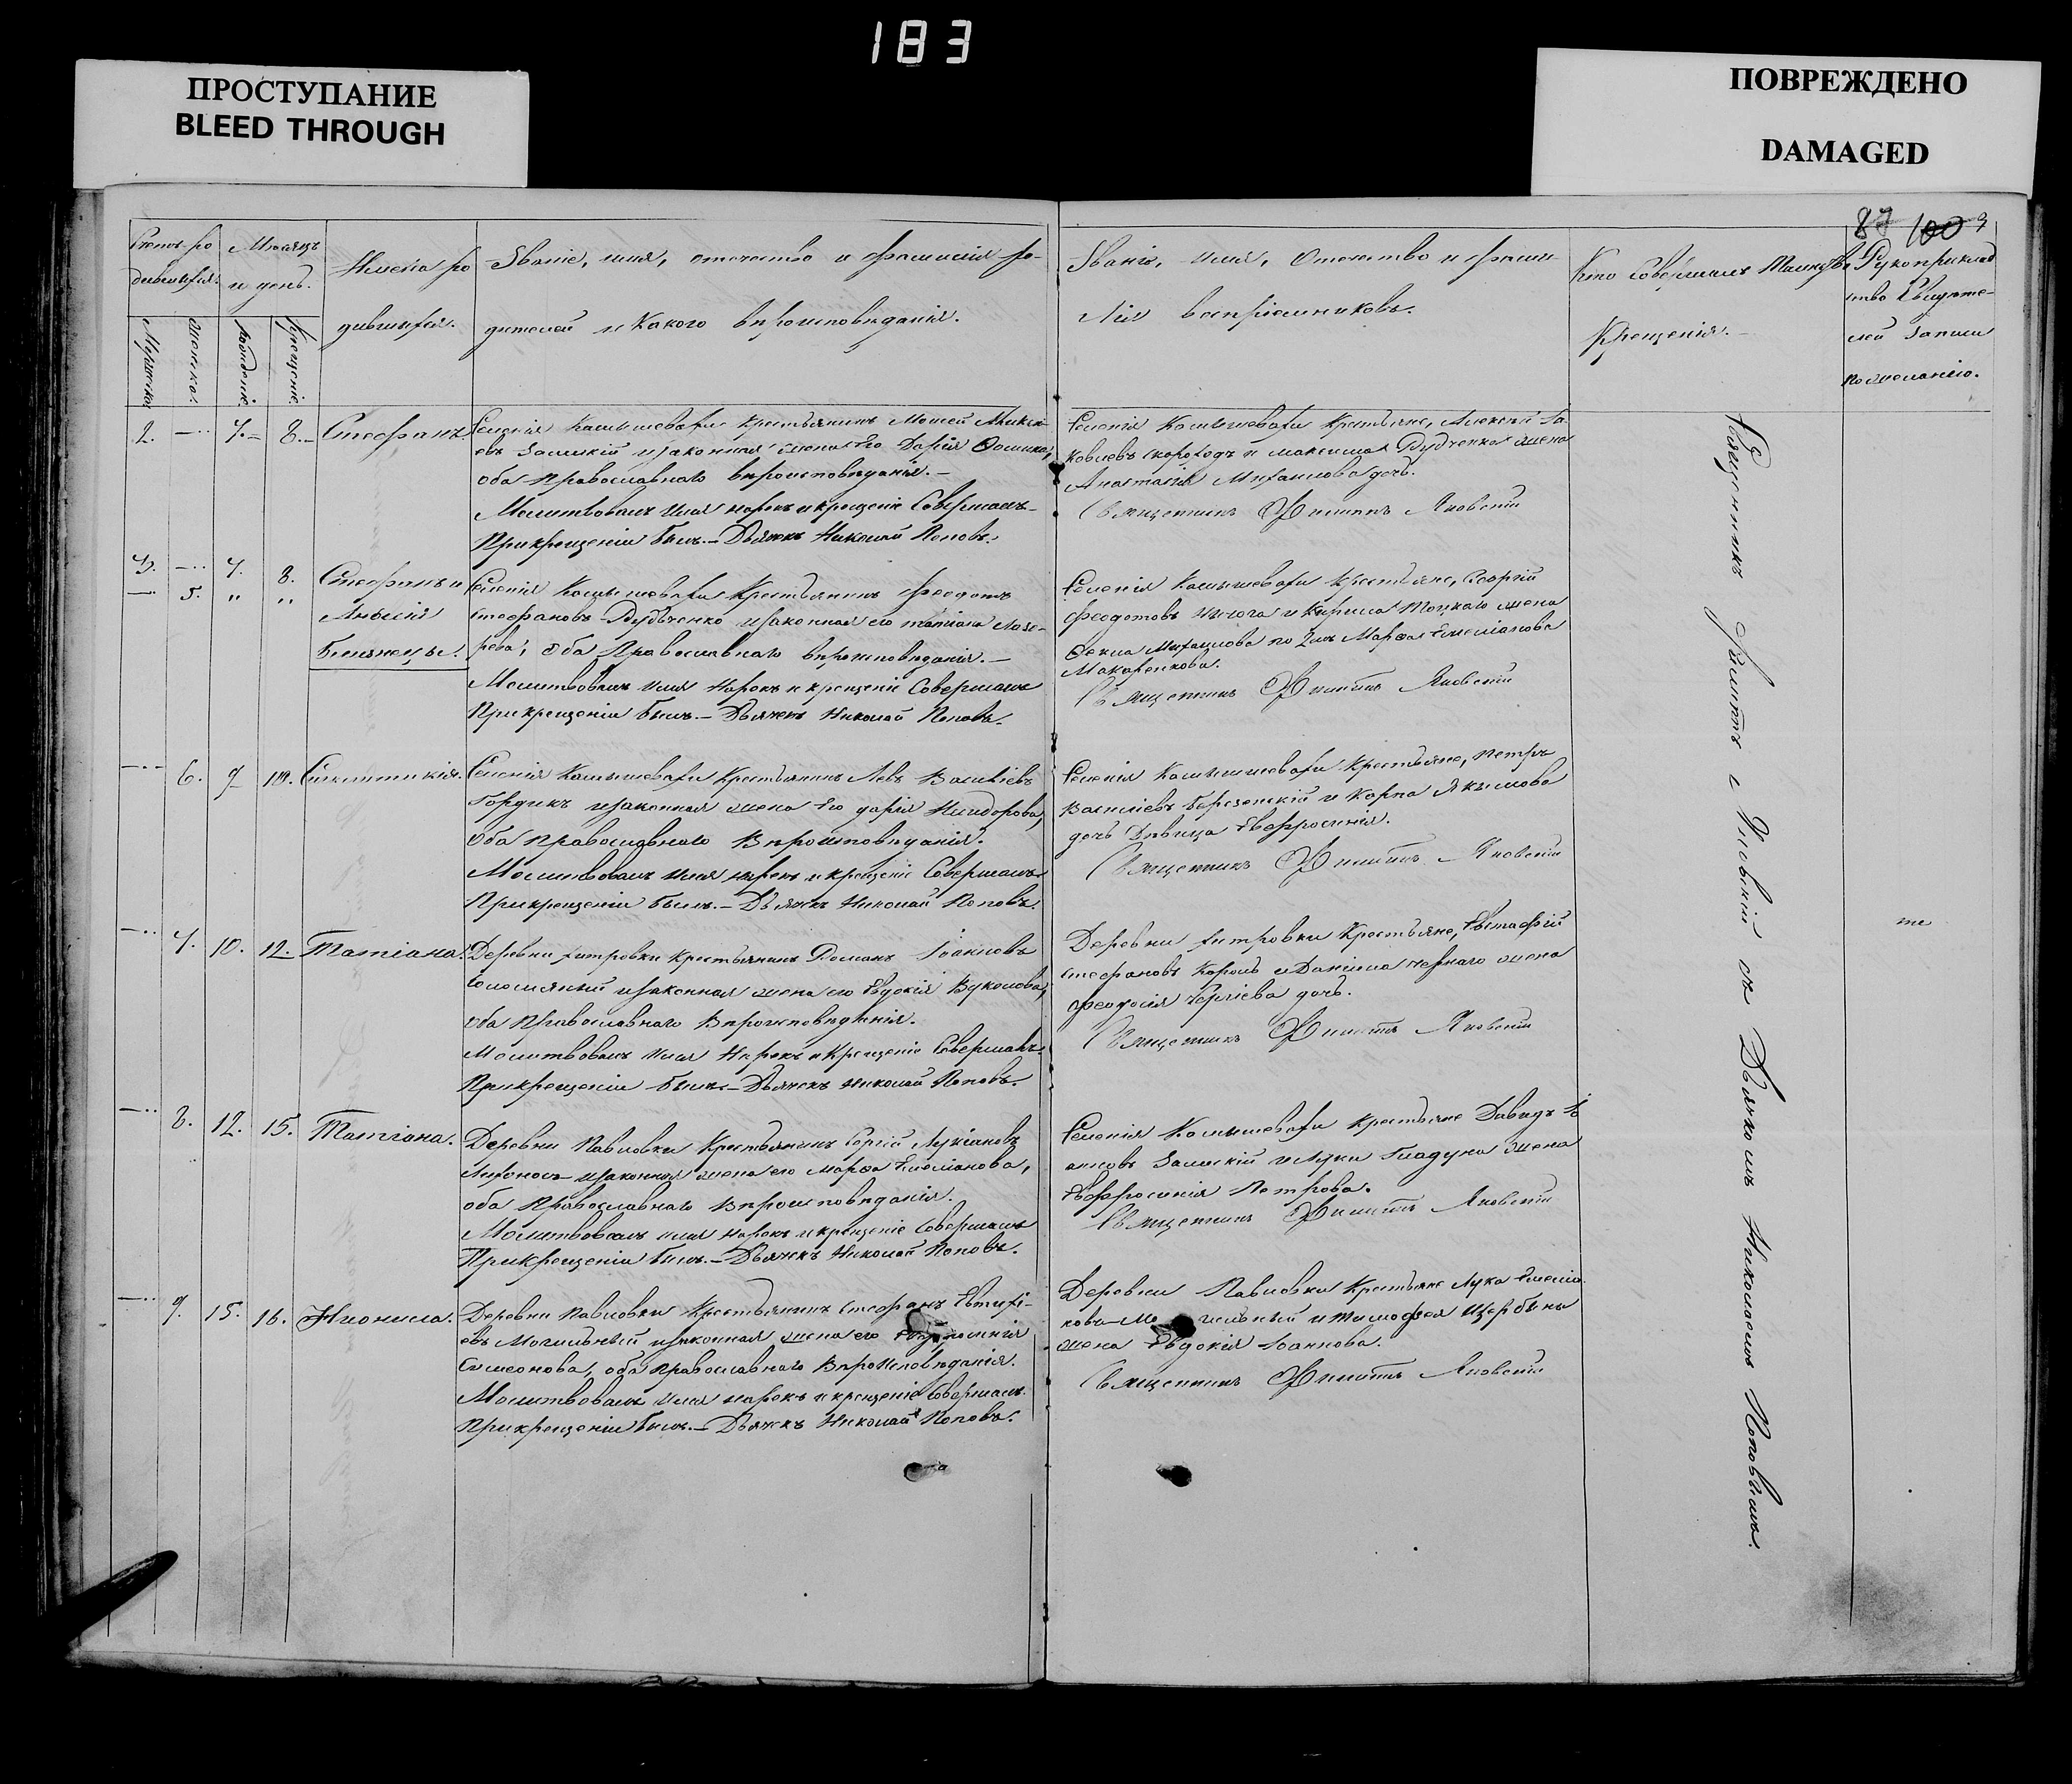 183
ПРОСТУПАНИЕ
BLEED THROUGH
ПОВРЕЖДЕНО
DAMAGED
87 100
Счетъ ро
дившихся.
Мѣсяцъ
и день.
Имена ро
дившихся.
Званіе, имя, отчество и фамилія ро-
дителей и Какого вѣроисповѣданія.
Мужеска.
Женска.
Рожденіе.
Крещеніе.
Званіе, имя, Отчество и фами-
лія воспріемниковъ.
Кто Совершалъ Таинство
Крещенія.
Рукоприклад
ство Свидѣте-
лей записи
по желанію.
2. — 7. 8. Стефанъ.
Селенія Камышевахи Крестьянинъ Моисей
евъ Залискій изаконная жена Его Дарія
оба православнаго вѣроисповѣданія.
Молитвовалъ имя нарекъ и крещеніе Совершалъ
При крещеніи былъ.— Дьячекъ Николай Поповъ.
Селенія Камышевахи Крестьяне, Алексѣй Іа
ковлевъ скороходъ и максима Рудченка жена
Анастасія Михаилова дочь.
Священникъ Филиппъ Яновскій
3. — 7. 8.
— 5. " "
Стефанъ и
Анисія
близнецы.
Селенія Камышевахи Крестьянинъ Феодотъ
стефановъ Рудченко изаконная его татіана Лаза-
рева, Оба Православнаго вѣроисповѣданія.—
Молитвовалъ имя Нарекъ и крещеніе Совершалъ
При крещеніи былъ.— Дьячекъ Николай Поповъ.
Селенія Камышевахи Крестьяне, Георгій
феодотовъ и Кирила жена
Фекла Михаилова по 2мъ Марфа Емеліанова
Макаренкова.
Священникъ Филиппъ Яновскій
— 6. 9. 10. Синклитикія.
Селенія Камышевахи Крестьянинъ Левъ Василіевъ
Гордикъ изаконная жена Его дарія Никифорова,
Оба православнаго Вѣроисповѣданія.
Молитвовалъ имя нарекъ и крещеніе Совершалъ
При крещеніи былъ.— Дьячекъ Николай Поповъ.
Селенія Камышевахи Крестьяне, Петръ
Василіевъ Березовскій и Карпа Якимова
дочь Дѣвица Евфросинія.
Священникъ Филиппъ Яновскій
— 7. 10. 12. Татіана.
Деревни Крестьянинъ Романъ Іоанновъ
Соломяный изаконная жена его Евдокія Вуколова,
оба Православнаго Вѣроисповѣданія.
Молитвовалъ имя Нарекъ и Крещеніе Совершалъ
При крещеніи былъ.— Дьячекъ Николай Поповъ.
Деревни Крестьяне, Евстафій
стефановъ Король и Даніила чернаго жена
феодосія Сергіева дочь.
Священникъ Филиппъ Яновскій
— 8. 12. 15. Татіана.
Деревни Павловки Крестьянинъ Сергій Лукіановъ
изаконная жена его марфа Емеліанова,
оба Православнаго Вѣроисповѣданія.
Молитвовалъ имя Нарекъ и крещеніе Совершалъ
При крещеніи былъ.— Дьячекъ Николай Поповъ.
Селенія Камышевахи Крестьяне Давидъ Іо
анновъ Залискій и Луки Гладуна жена
Евфросинія Петрова.
Священникъ Филиппъ Яновскій
— 9. 15. 16. Неонила.
Деревни Павловки Крестьянинъ стефанъ Евтихі-
евъ Могильный изаконная жена его Евфросинія
Симеонова, оба православнаго Вѣроисповѣданія.
Молитвовалъ имя нарекъ и крещеніе Совершалъ
При крещеніи былъ.— Дьячекъ Николай Поповъ.
Деревни Павловки Крестьяне Лука Емеліа
новъ Мо гильный и тимофея Щербины
жена Евдокія Іоаннова.
Священникъ Филиппъ Яновскій
Священникъ Филиппъ Яновскій съ Дьячкомъ Николаемъ Поповымъ.